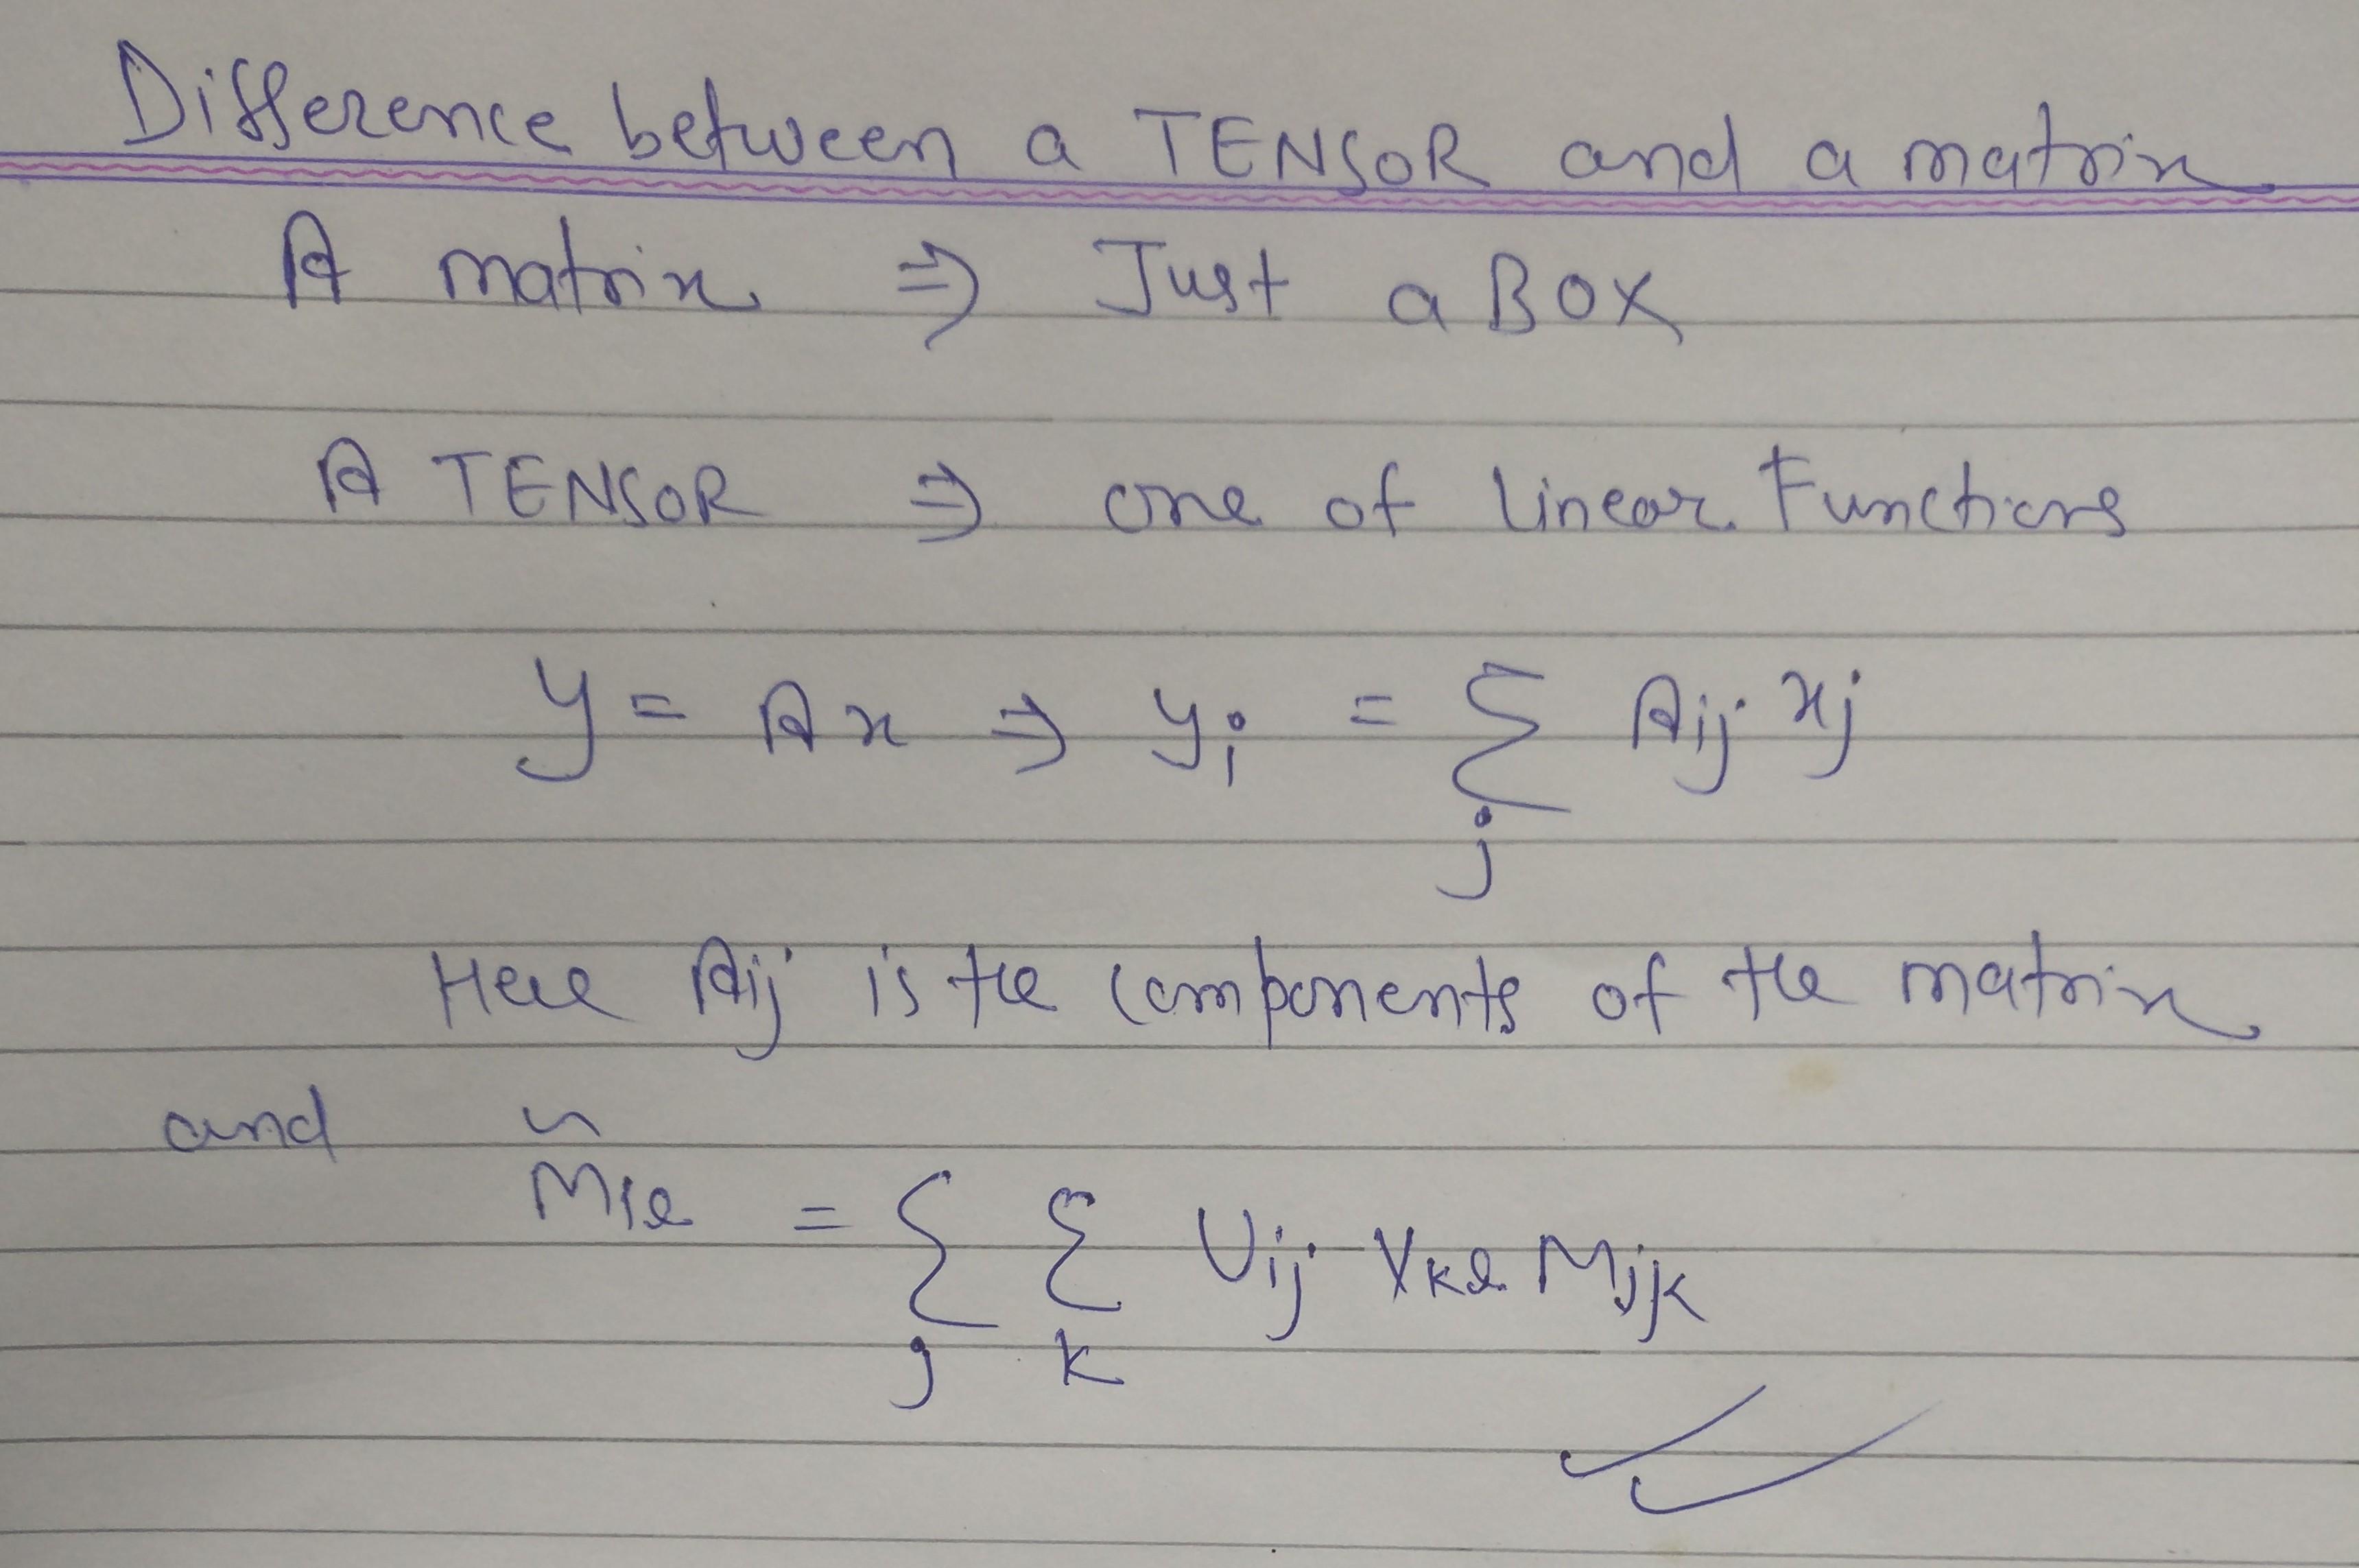 Difference between a TENSOR and a matrix
A matrix ⇒ Just a BOX
A TENSOR ⇒ one of linear Functions
y = Ax ⇒ yᵢ = Σ Aij xj
j
Here Aij is the components of the matrix
and
M̃iℓ = Σ Σ Uij Vkℓ Mjk
j k